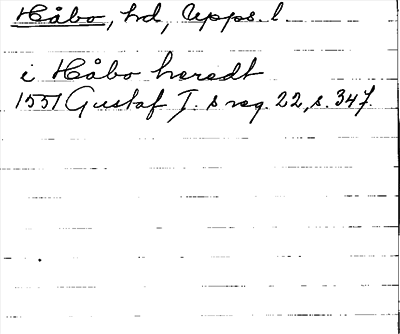 Håbo, hd, Upps. l.
i Håbo heredt
1551 Gustaf I. s reg. 22, s. 347.